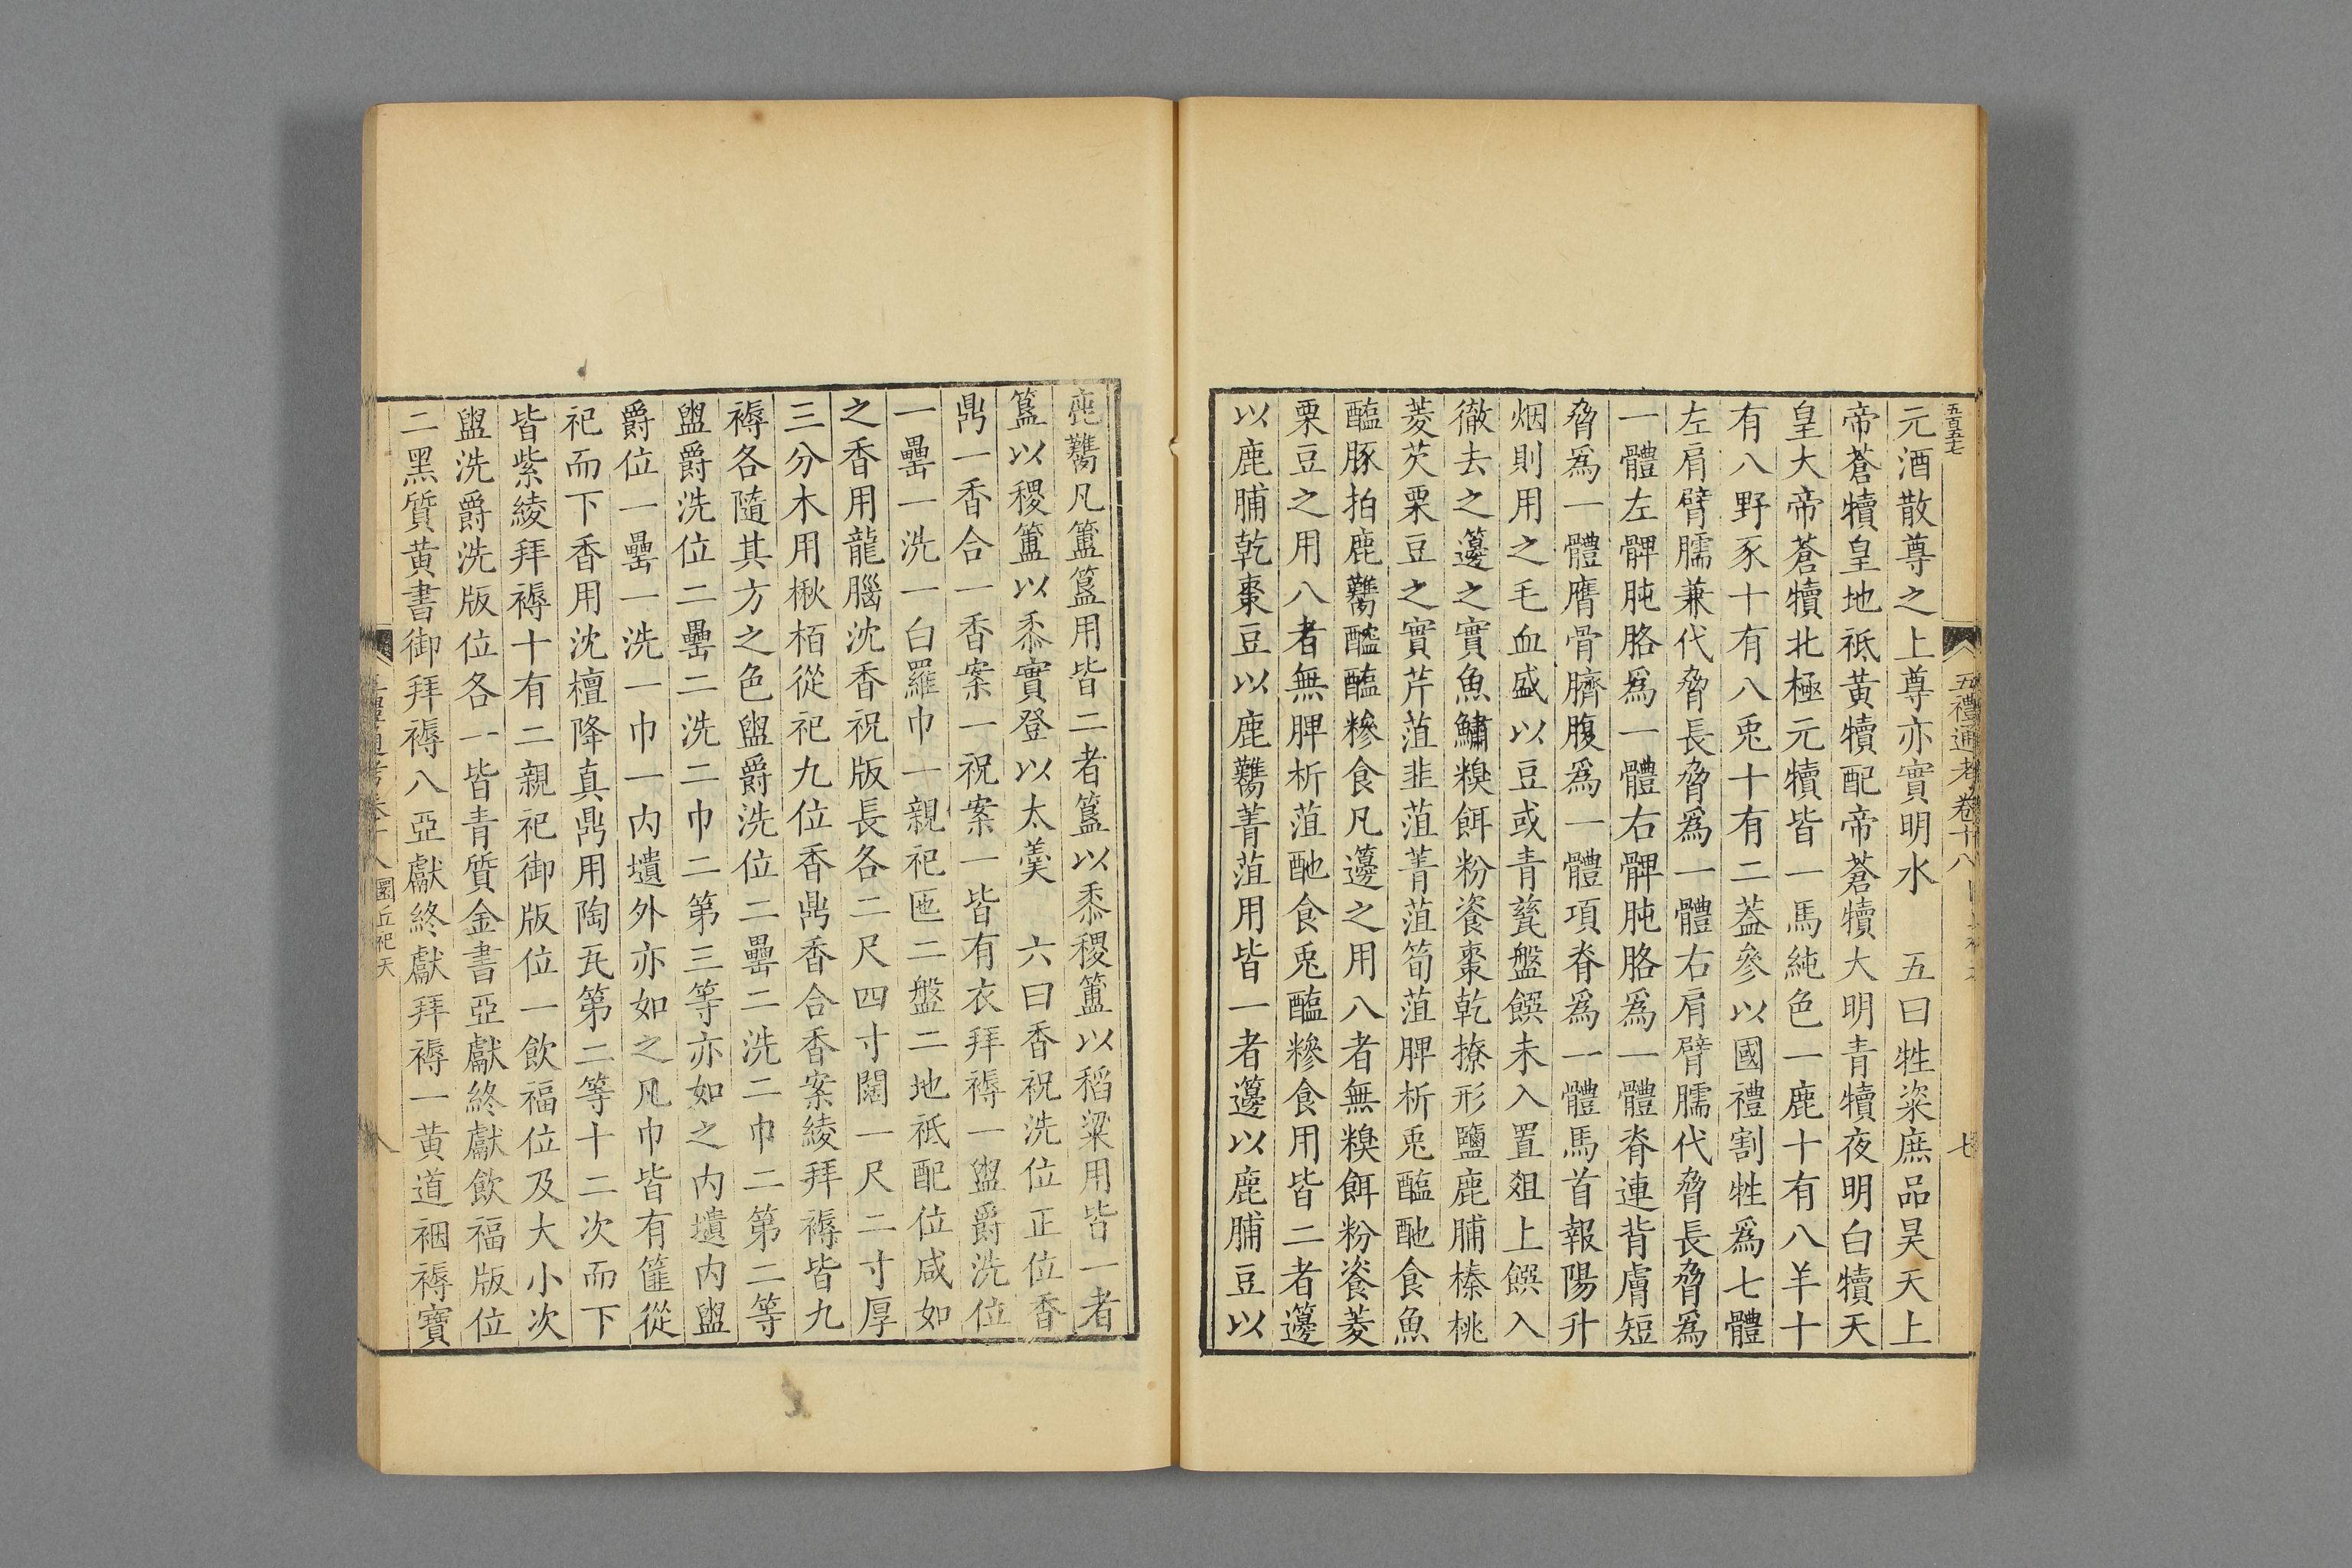 五百五七
五禮通考卷十八
七
元酒散尊之上尊亦實明水 五曰牲粢庶品昊天上
帝蒼犢皇地祗黃犢配帝蒼犢大明青犢夜明白犢天
皇大帝蒼犢北極元犢皆一馬純色一鹿十有八羊十
有八野豕十有八兎十有二葢參以國禮割牲爲七體
左肩臂臑兼代脅長脅爲一體右肩臂臑代脅長脅爲
一體左髀肫胳爲一體右髀肫胳爲一體脊連背膚短
脅爲一體膺骨臍腹爲一體項脊爲一體馬首報陽升
烟則用之毛血盛以豆或青甆盤饌未入置爼上饌入
徹去之籩之實魚鱐糗餌粉餈棗乾橑形鹽鹿脯榛桃
菱芡栗豆之實芹菹韭菹菁菹筍菹脾析兎醢酏食魚
醢豚拍鹿臡醓醢糝食凡籩之用八者無糗餌粉餈菱
栗豆之用八者無脾析菹酏食兎醢糝食用皆二者籩
以鹿脯乾棗豆以鹿臡菁菹用皆一者籩以鹿脯豆以
鹿臡凡簠簋用皆二者簋以黍稷簠以稻粱用皆一者
簋以稷簠以黍實登以太羹 六曰香祝洗位正位香
鼎一香合一香案一祝案一皆有衣拜褥一盥爵洗位
一罍一洗一白羅巾一親祀匜二盤二地祗配位咸如
之香用龍腦沈香祝版長各二尺四寸闊一尺二寸厚
三分木用楸栢從祀九位香鼎香合香案綾拜褥皆九
褥各隨其方之色盥爵洗位二罍二洗二巾二第二等
盥爵洗位二罍二洗二巾二第三等亦如之內壝內盥
爵位一罍一洗一巾一內壝外亦如之凡巾皆有篚從
祀而下香用沈檀降真鼎用陶瓦第二等十二次而下
皆紫綾拜褥十有二親祀御版位一飲福位及大小次
盥洗爵洗版位各一皆青質金書亞獻終獻飲福版位
二黑質黃書御拜褥八亞獻終獻拜褥一黃道裀褥寶
圜丘祀天
八